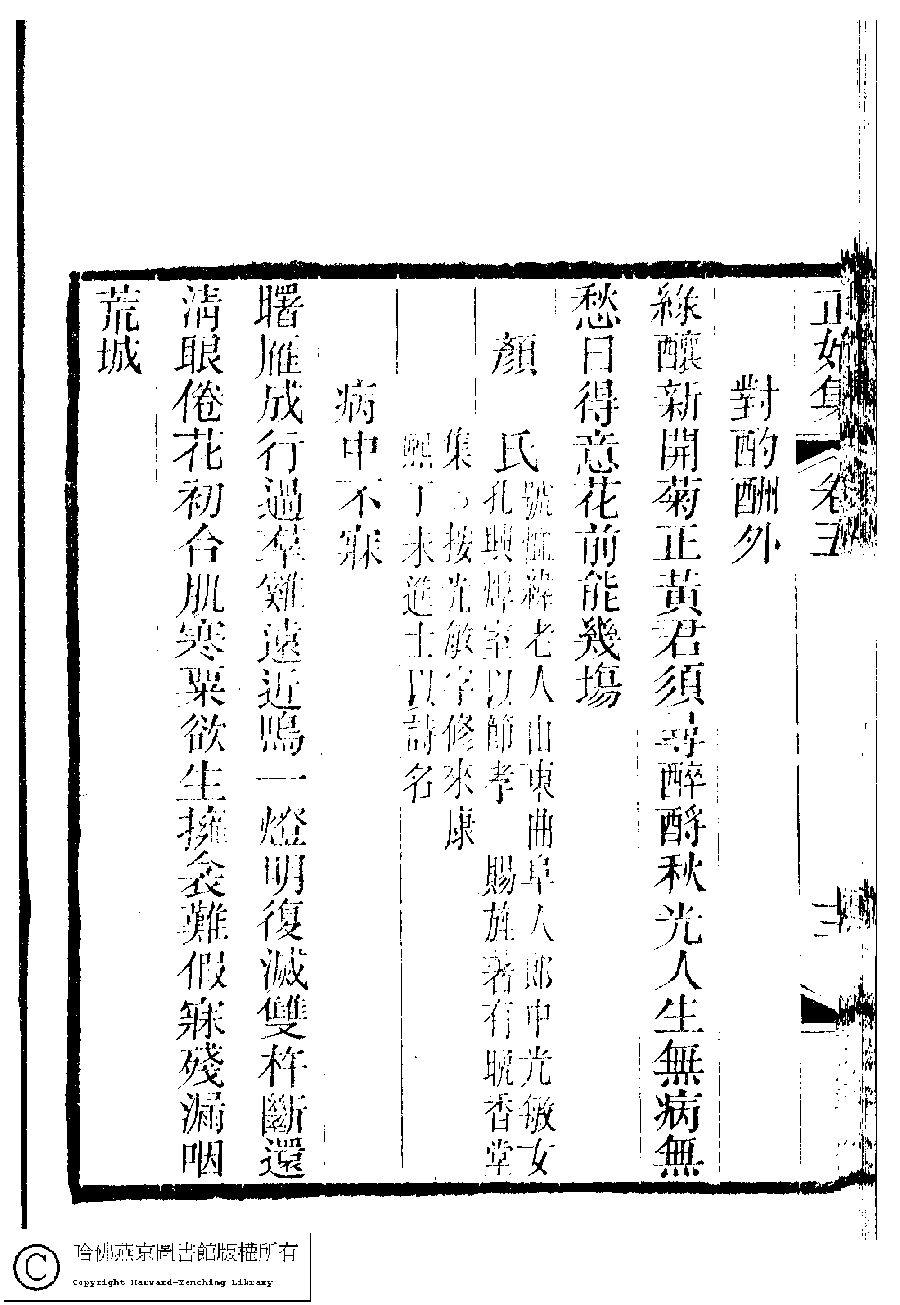 正始集 卷五
對酌酬外
綠釀新開菊正黃君須尋醉酹秋光人生無病無
愁日得意花前能幾場
顏 氏
號恤緯老人山東曲阜人郎中光敏女
孔興煒室以節孝 賜旌著有晚香堂
集 按光敏字修來康
熙丁未進士以詩名
病中不寐
曙雁成行過羣雞遠近鳴一燈明復滅雙杵斷還
清眼倦花初合肌寒粟欲生擁衾難假寐殘漏咽
荒城
哈佛燕京圖書館版權所有
Copyright Harvard-Yenching Library